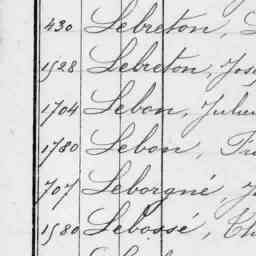 430 Lebreton,
1528 Lebreton,
1704 Lebon,
1780 Lebon,
707 Leborgné,
1580 Lebossé,